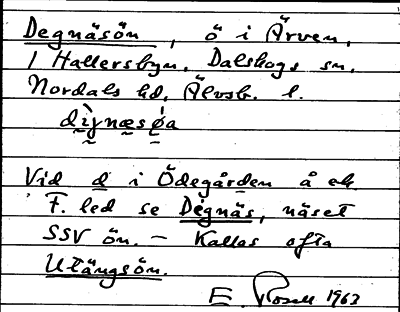 Degnäsön, ö i Ärven,
1 Hallersbyn, Dalskogs sn,
Nordals hd, Älvsb. l.
dìgnæsø̀a
Vid d i Ödegården å ek
F. led se Degnäs, näset
SSV ön. – Kallas ofta
Utängsön.
E. Rosell 1963